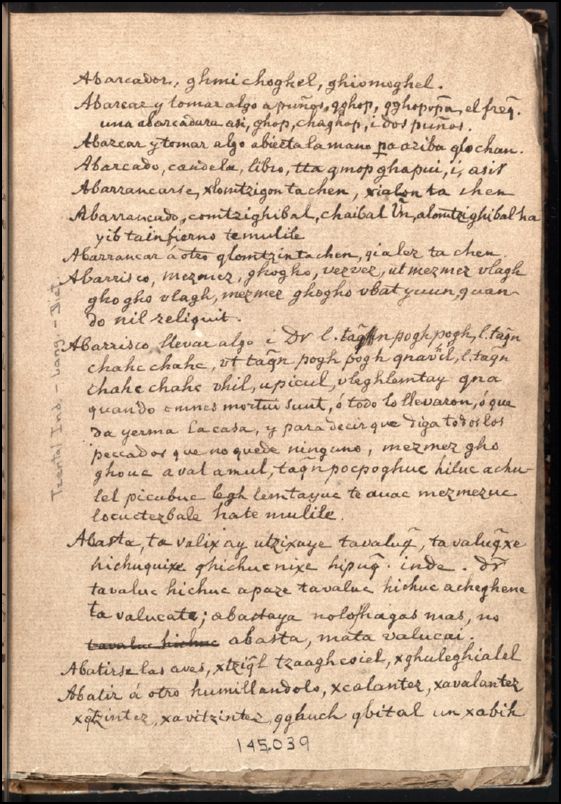 Abarcador, ghmichoghel, ghiomoghel.
Abarcar y tomar algo a puños, qghop, qghopopa, el freq.
una abarcadura asi, ghop, chaghop, i dos puños.
Abarcar y tomar algo abierta la mano pa ariba qlochan.
Abarcado, candela, libro, tta qmop ghapui, i, asir
Abarrancarse, xlomtzigon ta chen, xialon ta chen
Abarrancado, comtzighibal, chaibal Vn, alomtzighibal ha
yib ta infierno te mulile
Abarrancar á otro qlomtzin ta chen, qialez ta chen
Abarrisco, mezmez, ghogho, vezvez, ut mezmez vlagh
ghogho vlagh, mezmez ghogho vbat yuun, quan-
do nil reliquit.
Abarrisco llevar algo i Dr l. pogh pogh, l. taq̃n
chahc chahc, vt taq̃n pogh pogh l. taq̃n
chahc chahc vhil, upicul, vleghlemtay qna
quando omnes mortui sunt, ó todo lo llevaron, ó que
da yerma la casa, y para decir que diga todos los
peccados que no quede ninguno, mezmez gho
ghouc aval amul, taq̃n pocpoghuc hiluc achu-
lel picubuc leghlemtayuc te auac mezmezuc
locuctezbale hate mulile.
Abasta, ta valix ay utzixaye tavaluq̃, ta valuq̃xe
hichuquixe ghichucnixe hipuq̃. inde. Dr
tavaluc hichuc apaze tavaluc hichuc acheghene
ta valucate; abastaya nolofhagas mas, no
tavaluc hichuc abasta, mata valucai.
Abatirse las aves, xtziq̃l tzaaghcosiel, xghuleghialel
Abatir á otro humillandolo, xcalantez, xavalantez
xqtzintez, xavitzintez, qghuch qbital un xabih
Tzental Ind. - Lang. - Dict.
145039